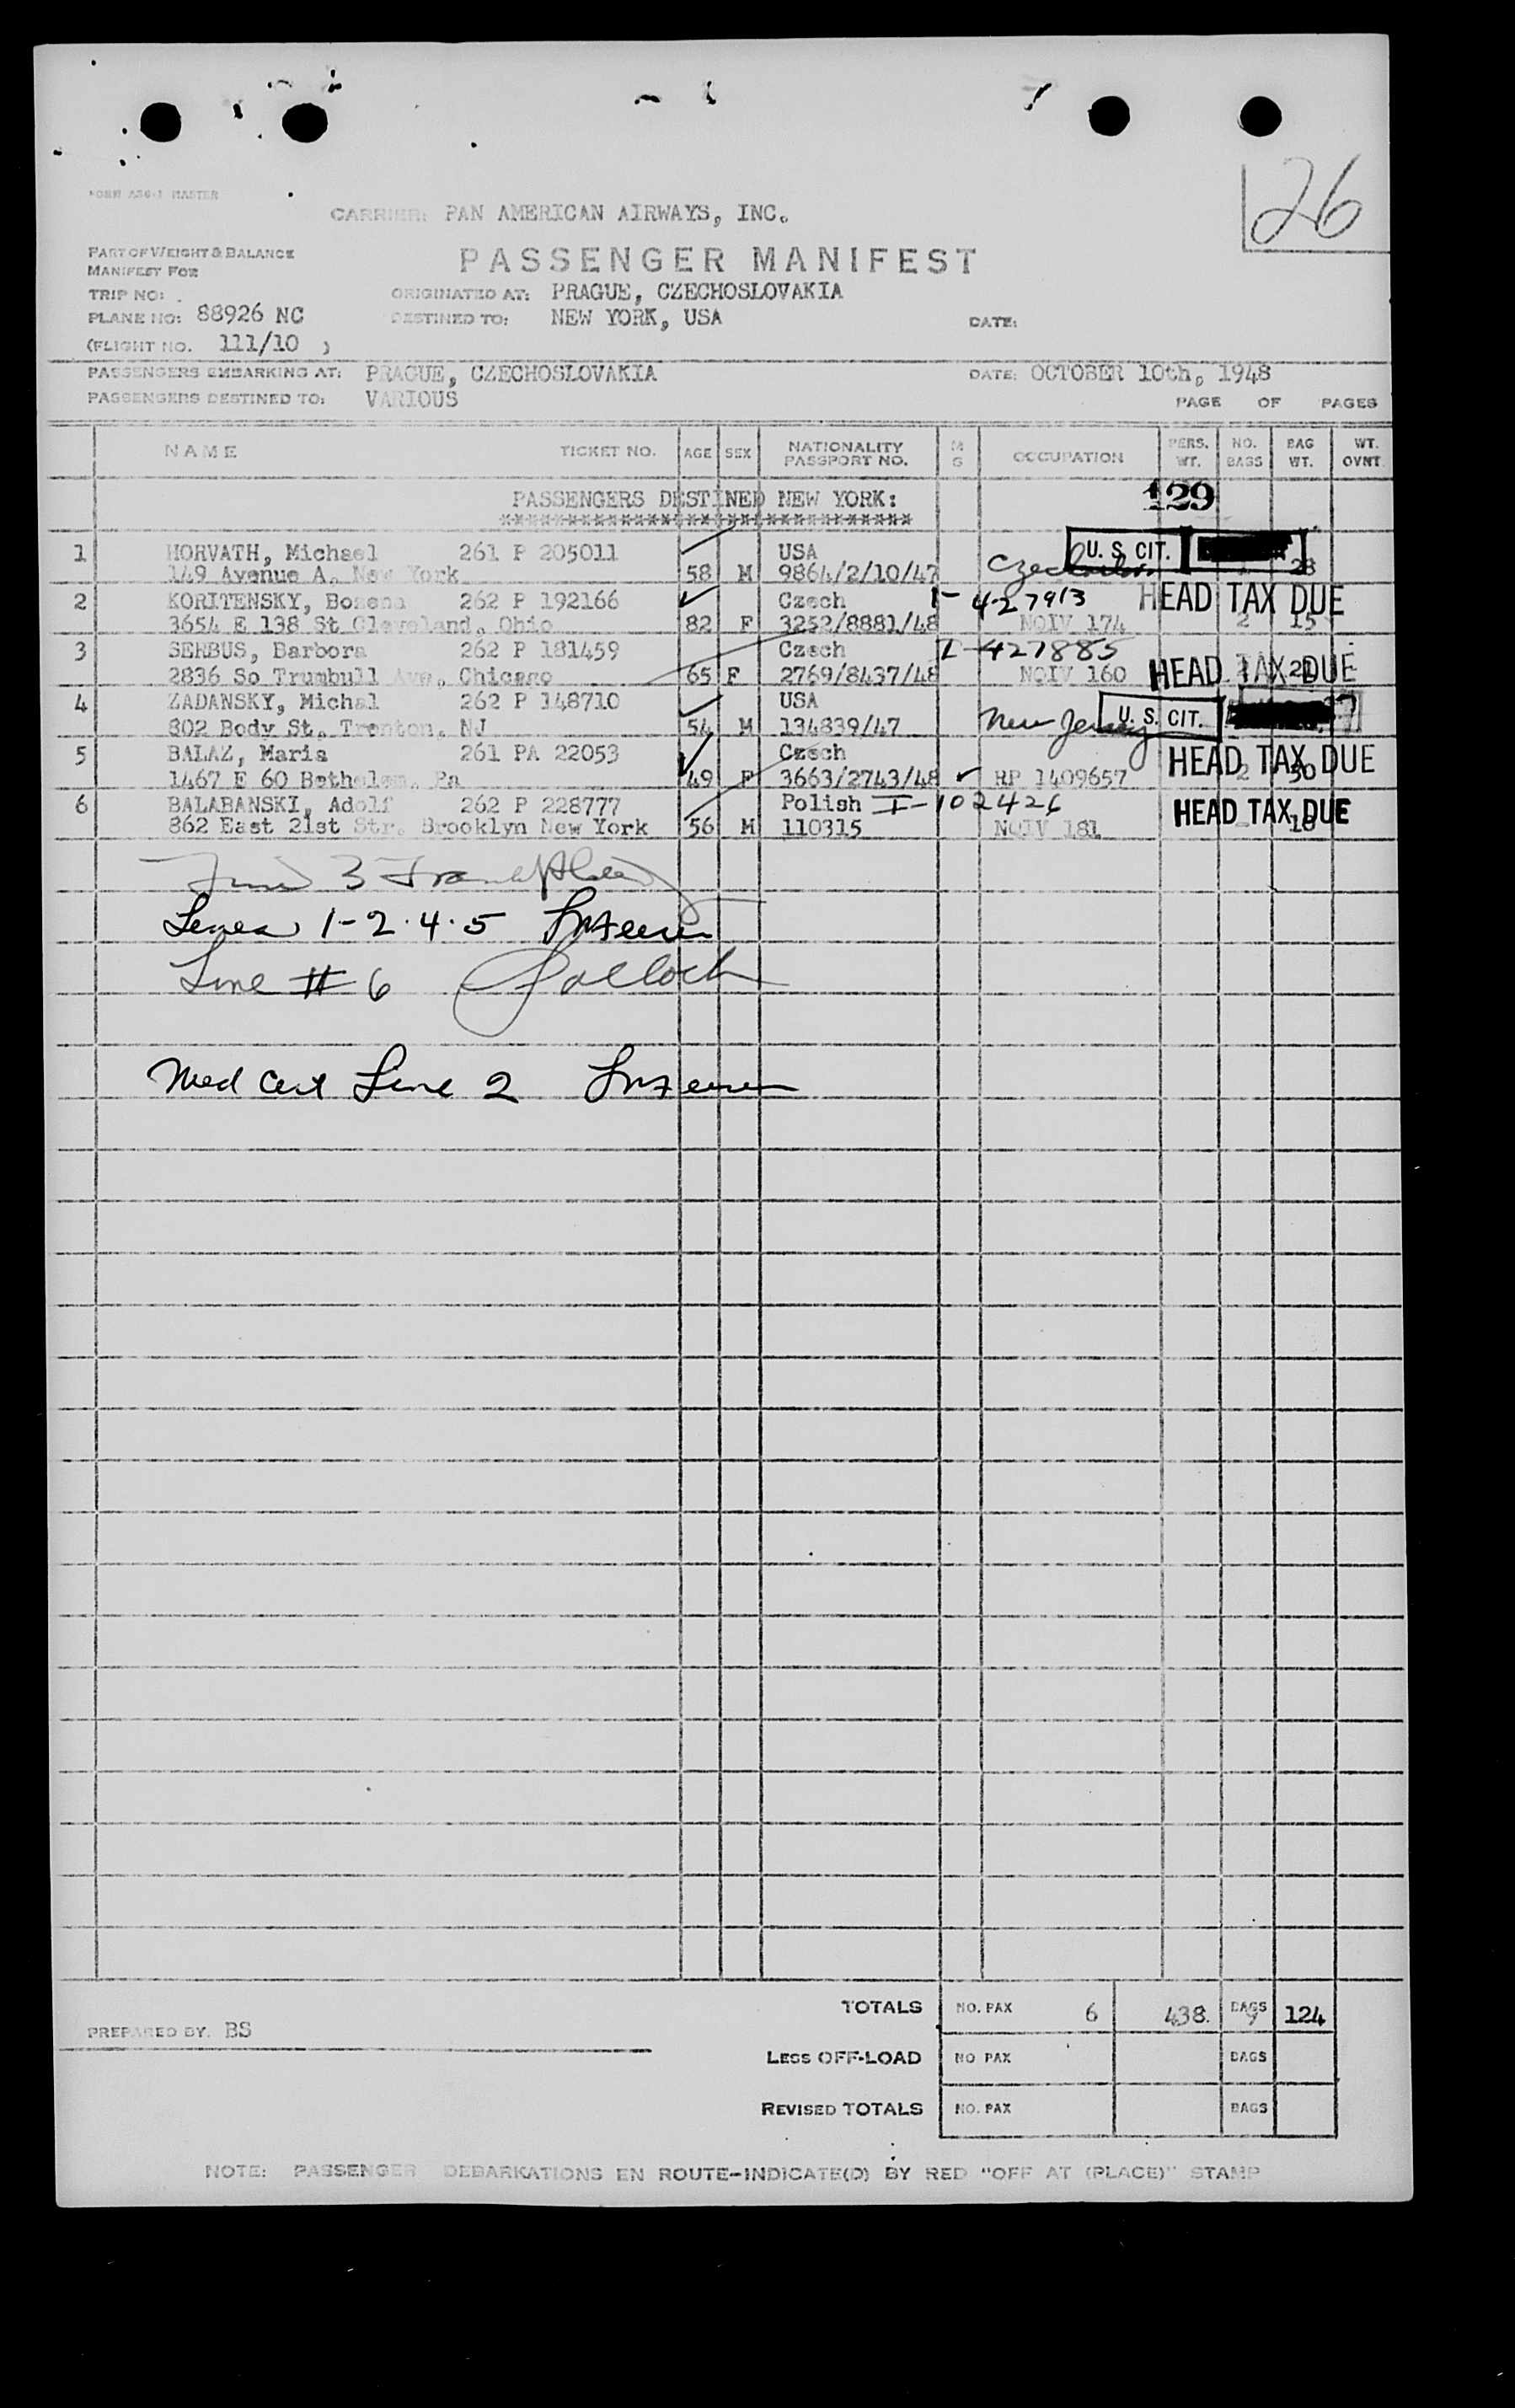 26
FORM ASG-1 MASTER
CARRIER: PAN AMERICAN AIRWAYS, INC.
PART OF WEIGHT & BALANCE
MANIFEST FOR
PASSENGER MANIFEST
TRIP NO:
ORIGINATED AT: PRAGUE, CZECHOSLOVAKIA
PLANE NO: 88926 NC
DESTINED TO: NEW YORK, USA DATE:
(FLIGHT NO. 111/10 )
PASSENGERS EMBARKING AT: PRAGUE, CZECHOSLOVAKIA DATE: OCTOBER 10th, 1948
PASSENGERS DESTINED TO: VARIOUS PAGE OF PAGES
NAME TICKET NO. AGE SEX NATIONALITY PASSPORT NO. M G OCCUPATION PERS. WT. NO. BAGS BAG WT. WT. OVNT.
PASSENGERS DESTINED NEW YORK: 129
************************************
1 HORVATH, Michael 261 P 205011 USA U. S. CIT.
149 Avenue A. New York 58 M 9864/2/10/47 28
2 KORITENSKY, Bozena 262 P 192166 Czech I-427913 HEAD TAX DUE
3654 E 138 St Cleveland, Ohio 82 F 3252/8881/48 NQIV 174 2 15
3 SERBUS, Barbora 262 P 181459 Czech I-427885
2836 So Trumbull Ave, Chicago 65 F 2769/8437/48 NQIV 160 HEAD TAX DUE 21
4 ZADANSKY, Michal 262 P 148710 USA
802 Body St. Trenton, NJ 54 M 134839/47 New Jersey U. S. CIT.
5 BALAZ, Maria 261 PA 22053 Czech HEAD TAX DUE
1467 E 60 Bethelem, Pa 49 F 3663/2743/48 RP 1409657 2 30
6 BALABANSKI, Adolf 262 P 228777 Polish I-102426 HEAD TAX DUE
862 East 21st Str. Brooklyn New York 56 M 110315 NQIV 181 18
3
1-2.4.5
Line # 6 Pollock
Med Cert Line 2
TOTALS NO. PAX 6 438. BAGS 9 124
PREPARED BY. BS
LESS OFF-LOAD NO PAX BAGS
REVISED TOTALS NO. PAX BAGS
NOTE: PASSENGER DEBARKATIONS EN ROUTE-INDICATE(D) BY RED "OFF AT (PLACE)" STAMP